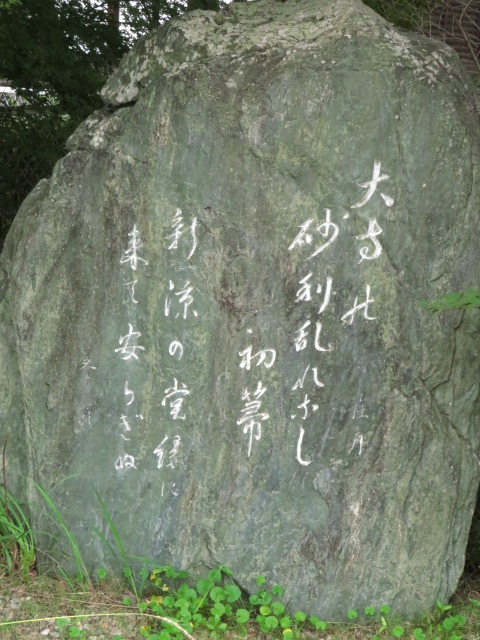 大寺の
砂利乱れなし
初幕
新涼の堂縁に
来て安らぎぬ